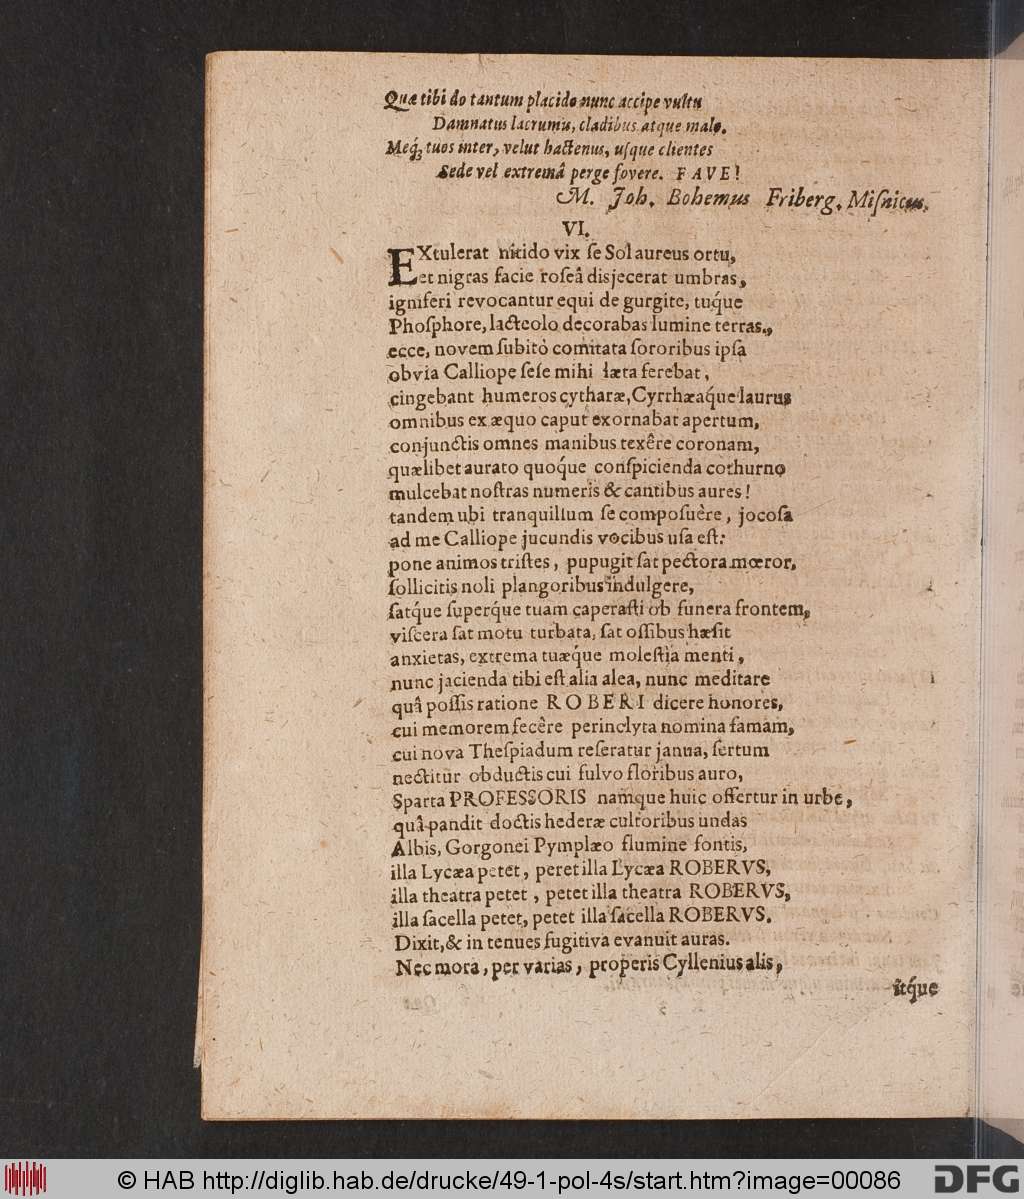 Quæ tibi do tantum placido nunc accipe vultu
Damnatus lacrumis, cladibus atque malo.
Meq́; tuos inter, velut hactenus, uſque clientes
Sede vel extremâ perge fovere. FAVE!
M. Joh. Bohemus Friberg. Miſnicus.
VI.
EXtulerat nitido vix ſe Sol aureus ortu,
et nigras facie roſeâ disjecerat umbras,
igniferi revocantur equi de gurgite, tuq́ue
Phoſphore, lacteolo decorabas lumine terras,
ecce, novem ſubitò comitata ſororibus ipſa
obvia Calliope ſeſe mihi læta ferebat,
cingebant humeros cytharæ, Cyrrhæaq́ue laurus
omnibus ex æquo caput exornabat apertum,
conjunctis omnes manibus texêre coronam,
quælibet aurato quoq́ue conſpicienda cothurno
mulcebat noſtras numeris & cantibus aures!
tandem ubi tranquillum ſe compoſuêre, jocoſa
ad me Calliope jucundis vocibus uſa eſt:
pone animos triſtes, pupugit ſat pectora mœror,
ſollicitis noli plangoribus indulgere,
ſatq́ue ſuperq́ue tuam caperaſti ob funera frontem,
viſcera ſat motu turbata, ſat oſſibus hæſit
anxietas, extrema tuæq́ue moleſtia menti,
nunc jacienda tibi eſt alia alea, nunc meditare
quâ poſſis ratione ROBERI dicere honores,
cui memorem fecêre perinclyta nomina famam,
cui nova Theſpiadum reſeratur janua, ſertum
nectitur obductis cui fulvo floribus auro,
Sparta PROFESSORIS namque huic offertur in urbe,
quâ pandit doctis hederæ cultoribus undas
Albis, Gorgonei Pymplæo flumine fontis,
illa Lycæa petet, petet illa Lycæa ROBERVS,
illa theatra petet, petet illa theatra ROBERVS,
illa ſacella petet, petet illa ſacella ROBERVS.
Dixit, & in tenues fugitiva evanuit auras.
Nec mora, per varias, properis Cyllenius alis,
itq́ue
© HAB http://diglib.hab.de/drucke/49-1-pol-4s/start.htm?image=00086
DFG